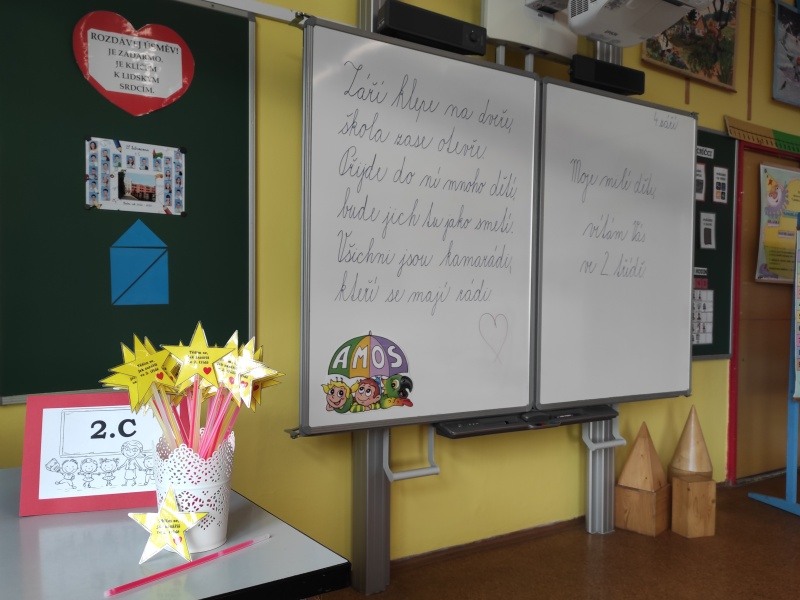 ROZDÁVEJ ÚSMĚV!
JE ZADARMO.
JE KLÍČEM
K LIDSKÝM
SRDCÍM.
Září klepe na dveře,
škola zase otevře.
Přijde do ní mnoho dětí,
bude jich tu jako smetí.
Všichni jsou kamarádi,
kteří se mají rádi
AMOS
4. září
Moje milé děti,
vítám Vás
ve 2. třídě
2.C